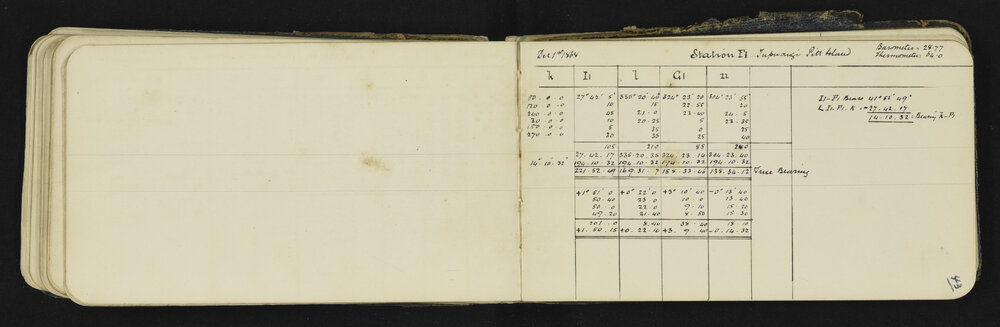 Dec 1st 1868 Station F1 Tupuangi Pitt Island Barometer = 29.77
Thermometer 64.0
k I1 l G1 n
90 . 0 . 0 27° 42' 5" 335° 20' 40" 324° 23' 20" 304° 23' 55"
120 . 0 . 0 10 15 22.55 20
240 . 0 . 0 45 21.0 23.40 24.5
30 . 0 . 0 10 20.25 5 23.35
150 . 0 . 0 5 35 0 25
270 . 0 . 0 20 35 25 40
105 210 85 240
27.42.17 335.20.35 324.23.14 304.23.40
14° 10' 32" 194.10.32 194.10.32 194.10.32 194.10.32
221.52.49 169.31.7 158.33.46 138.34.12 True Bearing
+1° 51' 0 +0° 22' 0 +3° 10' 40 -0° 13' 40
50.40 23.0 10 0 13.40
50.0 22.0 9.10 15.20
49.20 21.40 8.50 15.30
201.0 8.40 38.40 58.10
+1.50.15 +0.22.10 +3.9.40 -0.14.32
I1-F1 Bears 41° 52' 49"
L I1. F1. k = 27.42.17
14.10.32 = Bearing k-F1